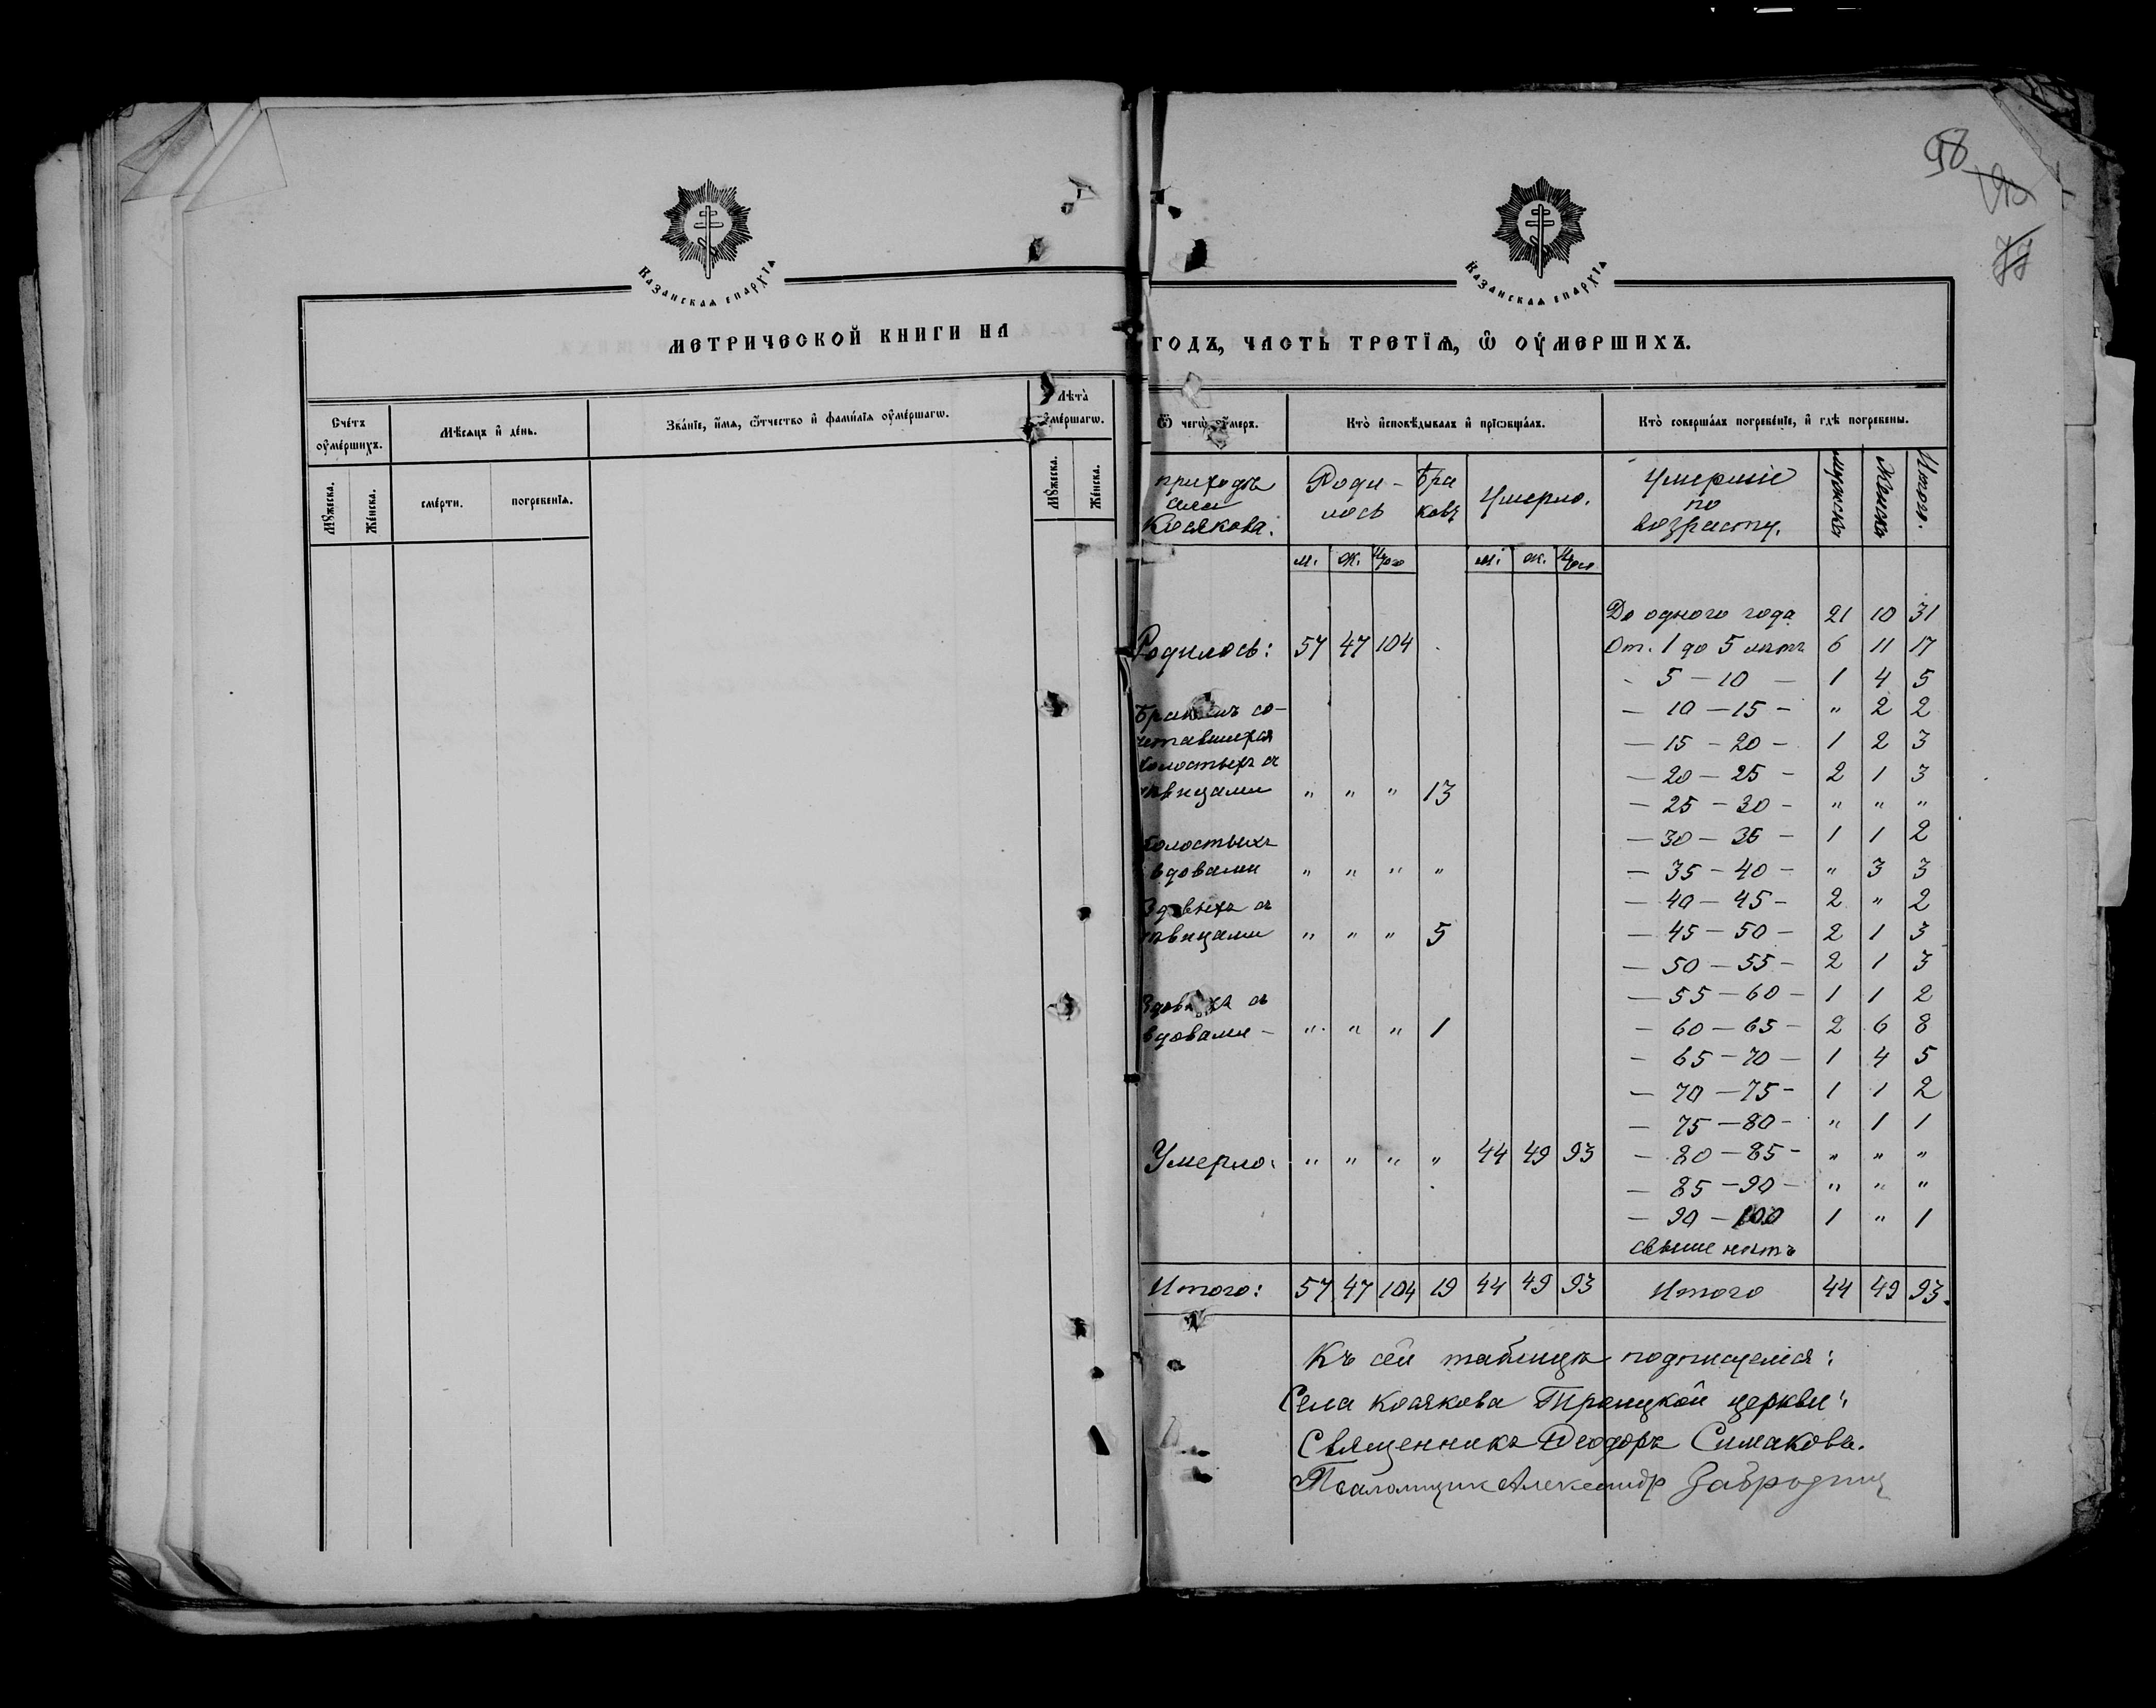 98
77
КАЗАНСКАЯ ЕПАРХІЯ
КАЗАНСКАЯ ЕПАРХІЯ
МЕТРИЧЕСКОЙ КНИГИ НА ГОДЪ, ЧАСТЬ ТРЕТІѦ, Ѿ ОУМЕРШИХЪ.
Счётъ оумершихъ.
Мѣсяцъ и день.
Званіе, имя, ѿчество и фамилія оумершагѡ.
Лѣта оумершагѡ.
Мужеска.
Женска.
смерти.
погребенія.
Мужеска.
Женска.
Ѿ чегѡ оумеръ.
Кто исповѣдывалъ и пріѡбщалъ.
Кто совершалъ погребеніе, и гдѣ погребены.
прихода села Косякова.
Роди-лось
Бра ковъ
Умерло.
Умершіе по возрасту.
Мужскъ
Женскъ
Итого.
м. ж. Итого м. ж. Итого
До одного года 21 10 31
Родилось: 57 47 104
От. 1 до 5 лѣтъ 6 11 17
- 5 - 10 - 1 4 5
Бракомъ со-
- 10 - 15 - " 2 2
четавшихся
- 15 - 20 - 1 2 3
холостыхъ съ
- 20 - 25 - 2 1 3
дѣвицами " " " 13
- 25 - 30 - " " "
Холостыхъ
- 30 - 35 - 1 1 2
съ вдовами " " " "
- 35 - 40 - " 3 3
Вдовыхъ съ
- 40 - 45 - 2 " 2
дѣвицами " " " 5
- 45 - 50 - 2 1 3
- 50 - 55 - 2 1 3
Вдовыхъ съ
- 55 - 60 - 1 1 2
вдовами - " " " 1
- 60 - 65 - 2 6 8
- 65 - 70 - 1 4 5
- 70 - 75 - 1 1 2
- 75 - 80 - " 1 1
Умерло: " " " " 44 49 93
- 80 - 85 - " " "
- 85 - 90 - " " "
- 90 - 100 1 " 1
свыше нѣтъ
Итого: 57 47 104 19 44 49 93 Итого 44 49 93.
Къ сей таблицѣ подписуемся:
Села Косякова Троицкой церкви:
Священникъ Ѳеодоръ Симаковъ.
Псаломщик Александр Забродин